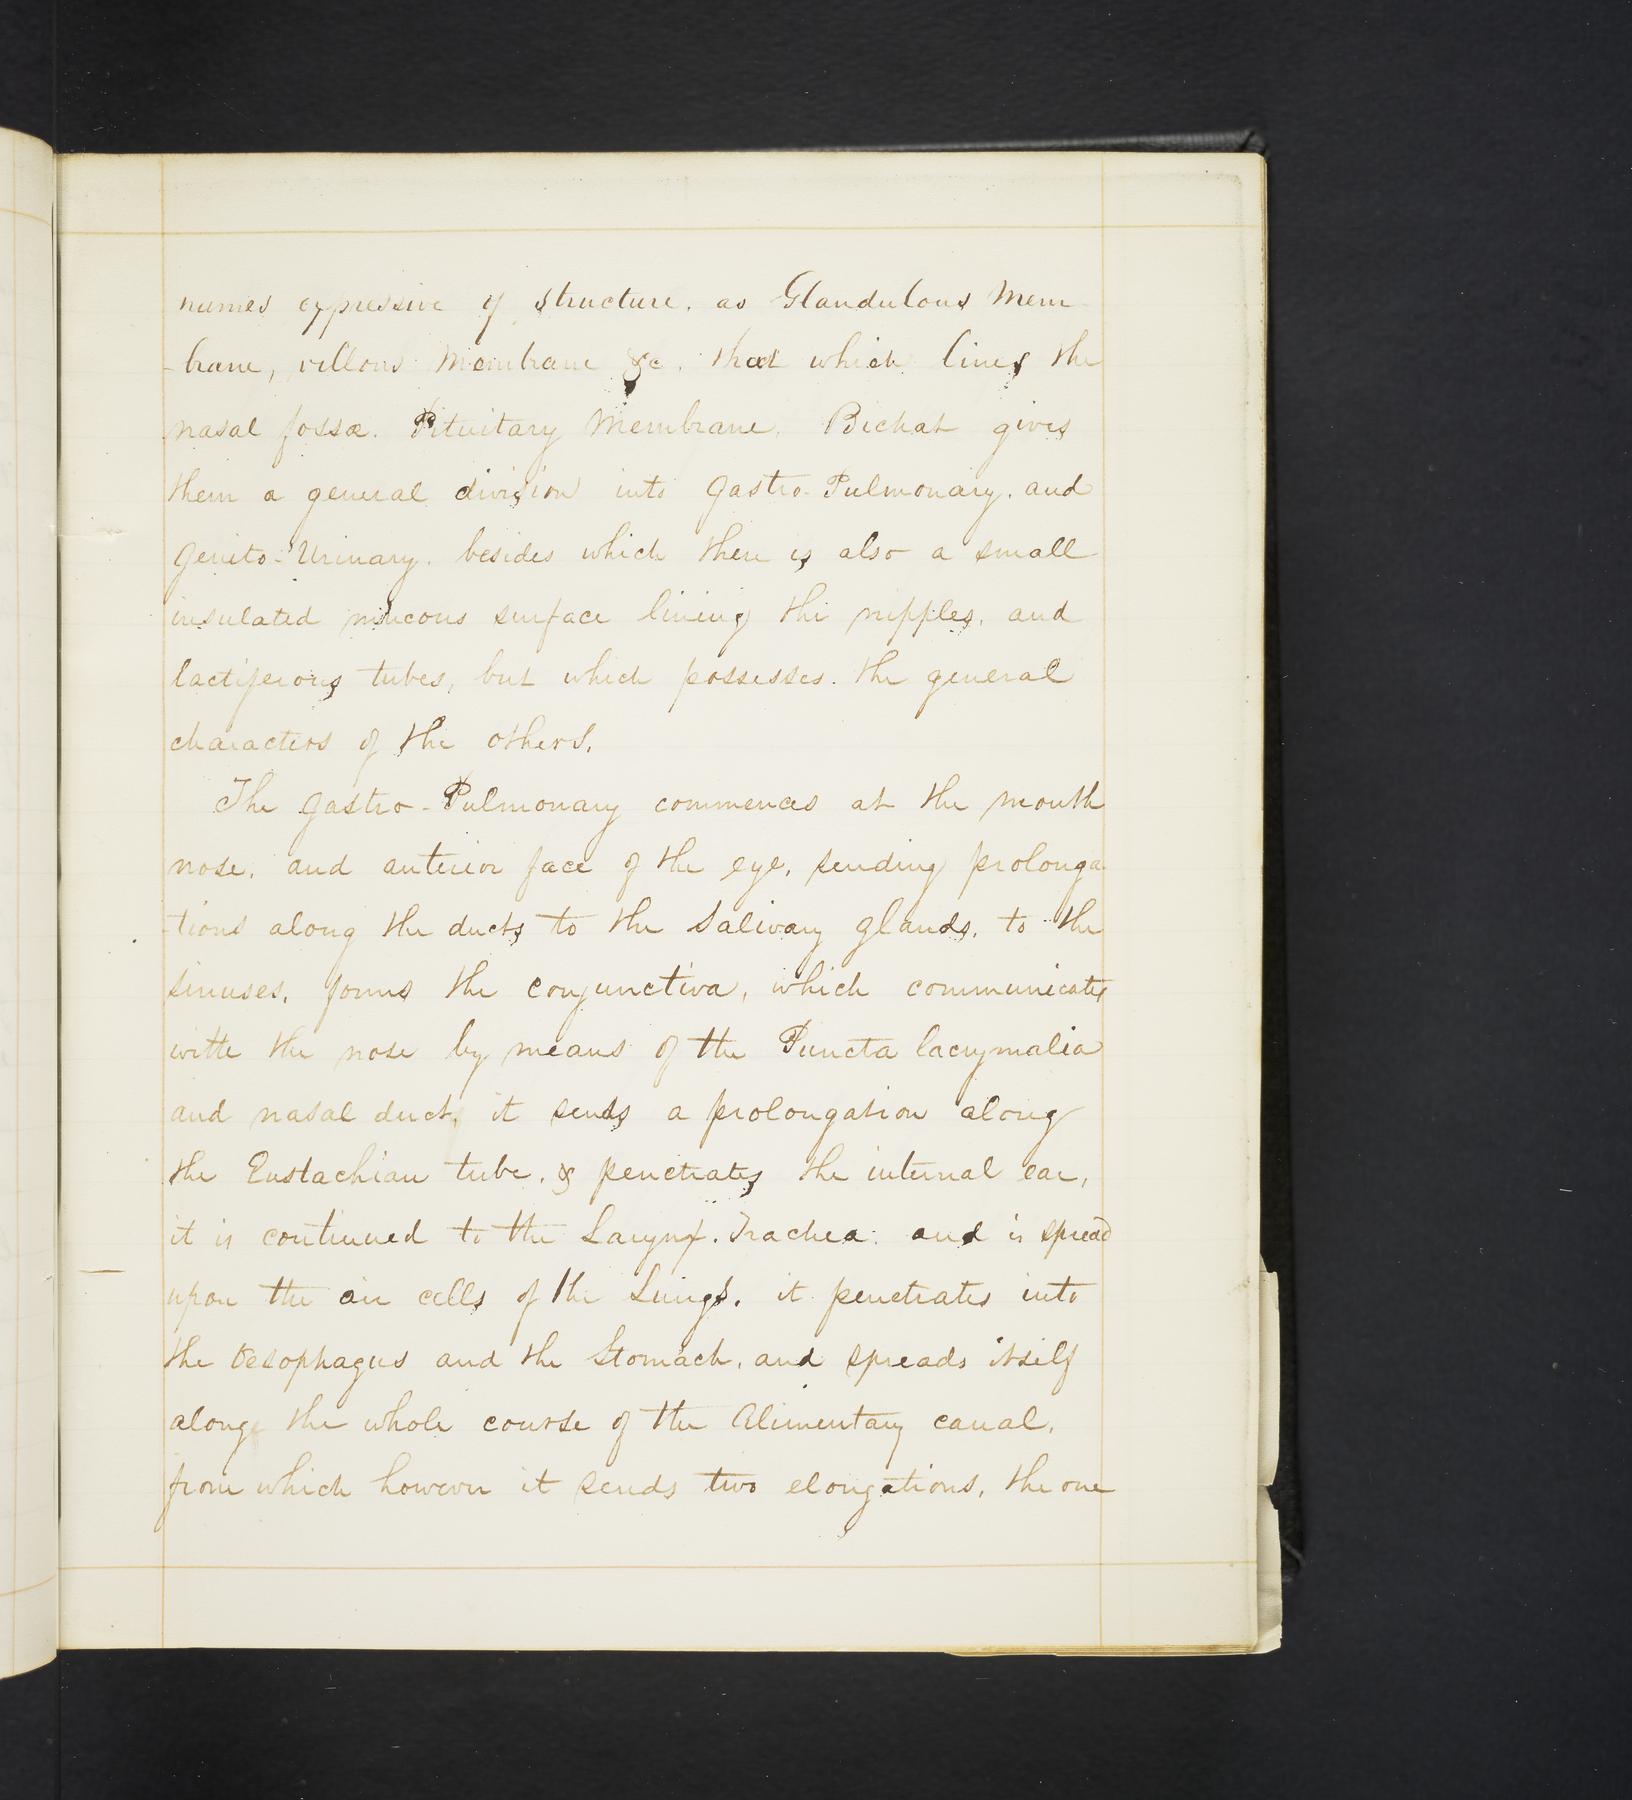 names expressive of structure. as Glandulous Mem
-brane, villous Membrane &c. that which lines the
nasal fossæ. Pituitary Membrane. Bichat gives
them a general division into Gastro-Pulmonary. and
Genito-Urinary. besides which there is also a small
insulated mucous surface lining the nipples. and
lactiferous tubes, but which possesses. the general
characters of the others.
The Gastro-Pulmonary commences at the mouth
nose. and anterior face of the eye. sending prolonga
-tions along the ducts to the Salivary glands. to the
sinuses. forms the conjunctiva, which communicates
with the nose by means of the Puncta lacrymalia
and nasal duct. it sends a prolongation along
the Eustachian tube. & penetrates the internal ear,
it is continued to the Larynx. Trachea. and is spread
upon the air cells of the Lungs. it penetrates into
the Oesophagus and the Stomach. and spreads itself
along the whole course of the Alimentary canal.
from which however it sends two elongations. the one